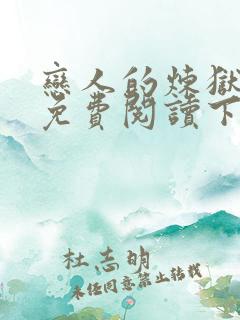 戀人的煉獄
免費閱讀下
杜志明
未經同意禁止轉載